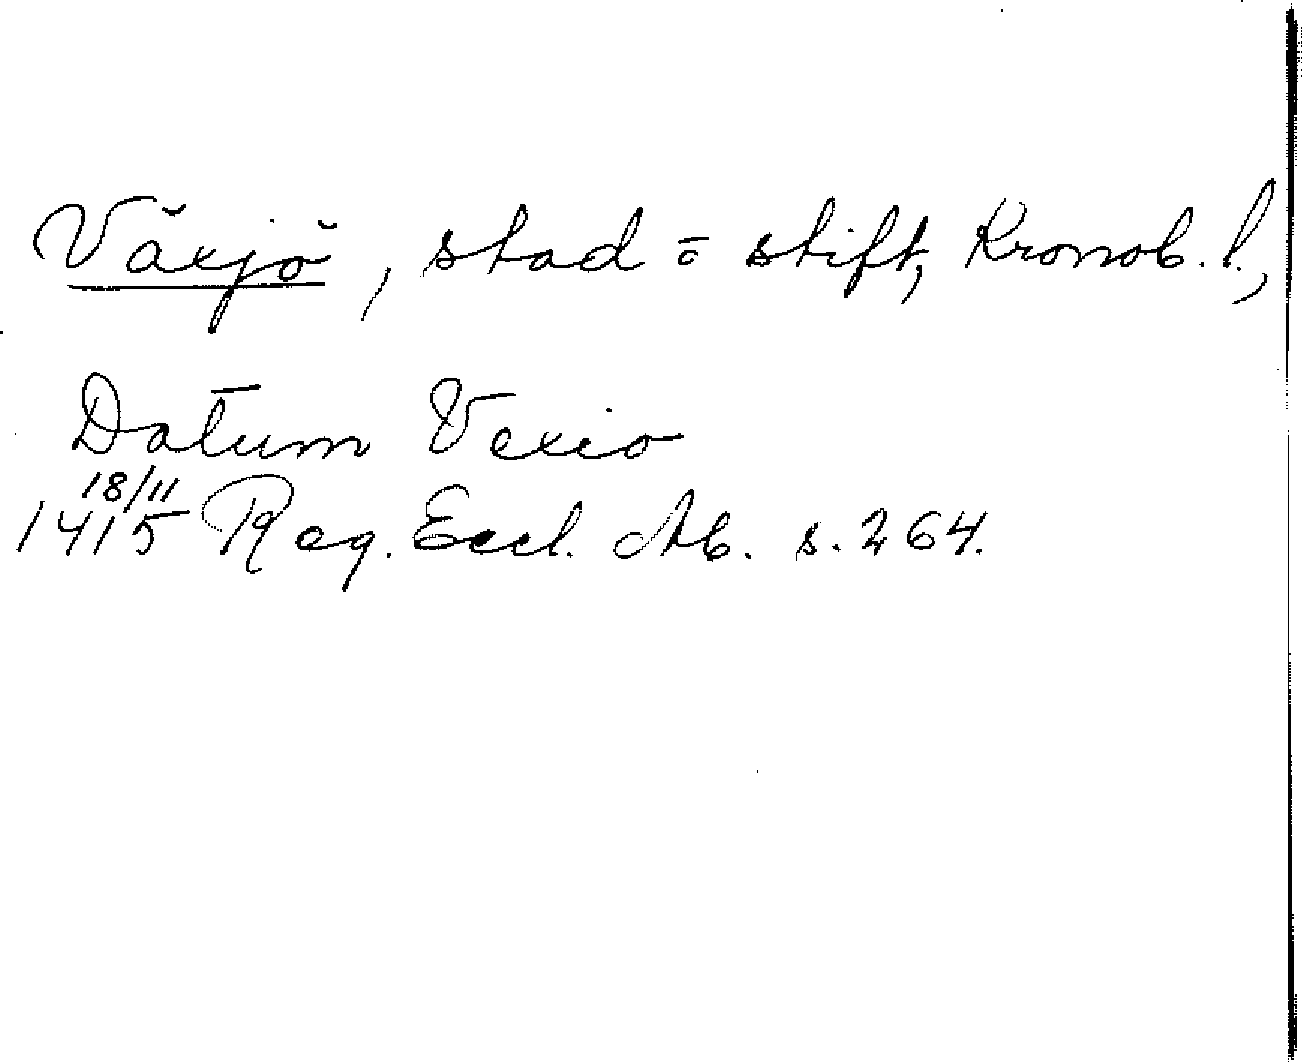 Växjö, stad o stift, Kronob. l.,
Datum Vexio
18/11
1415 Reg. Eccl. Ab. s. 264.